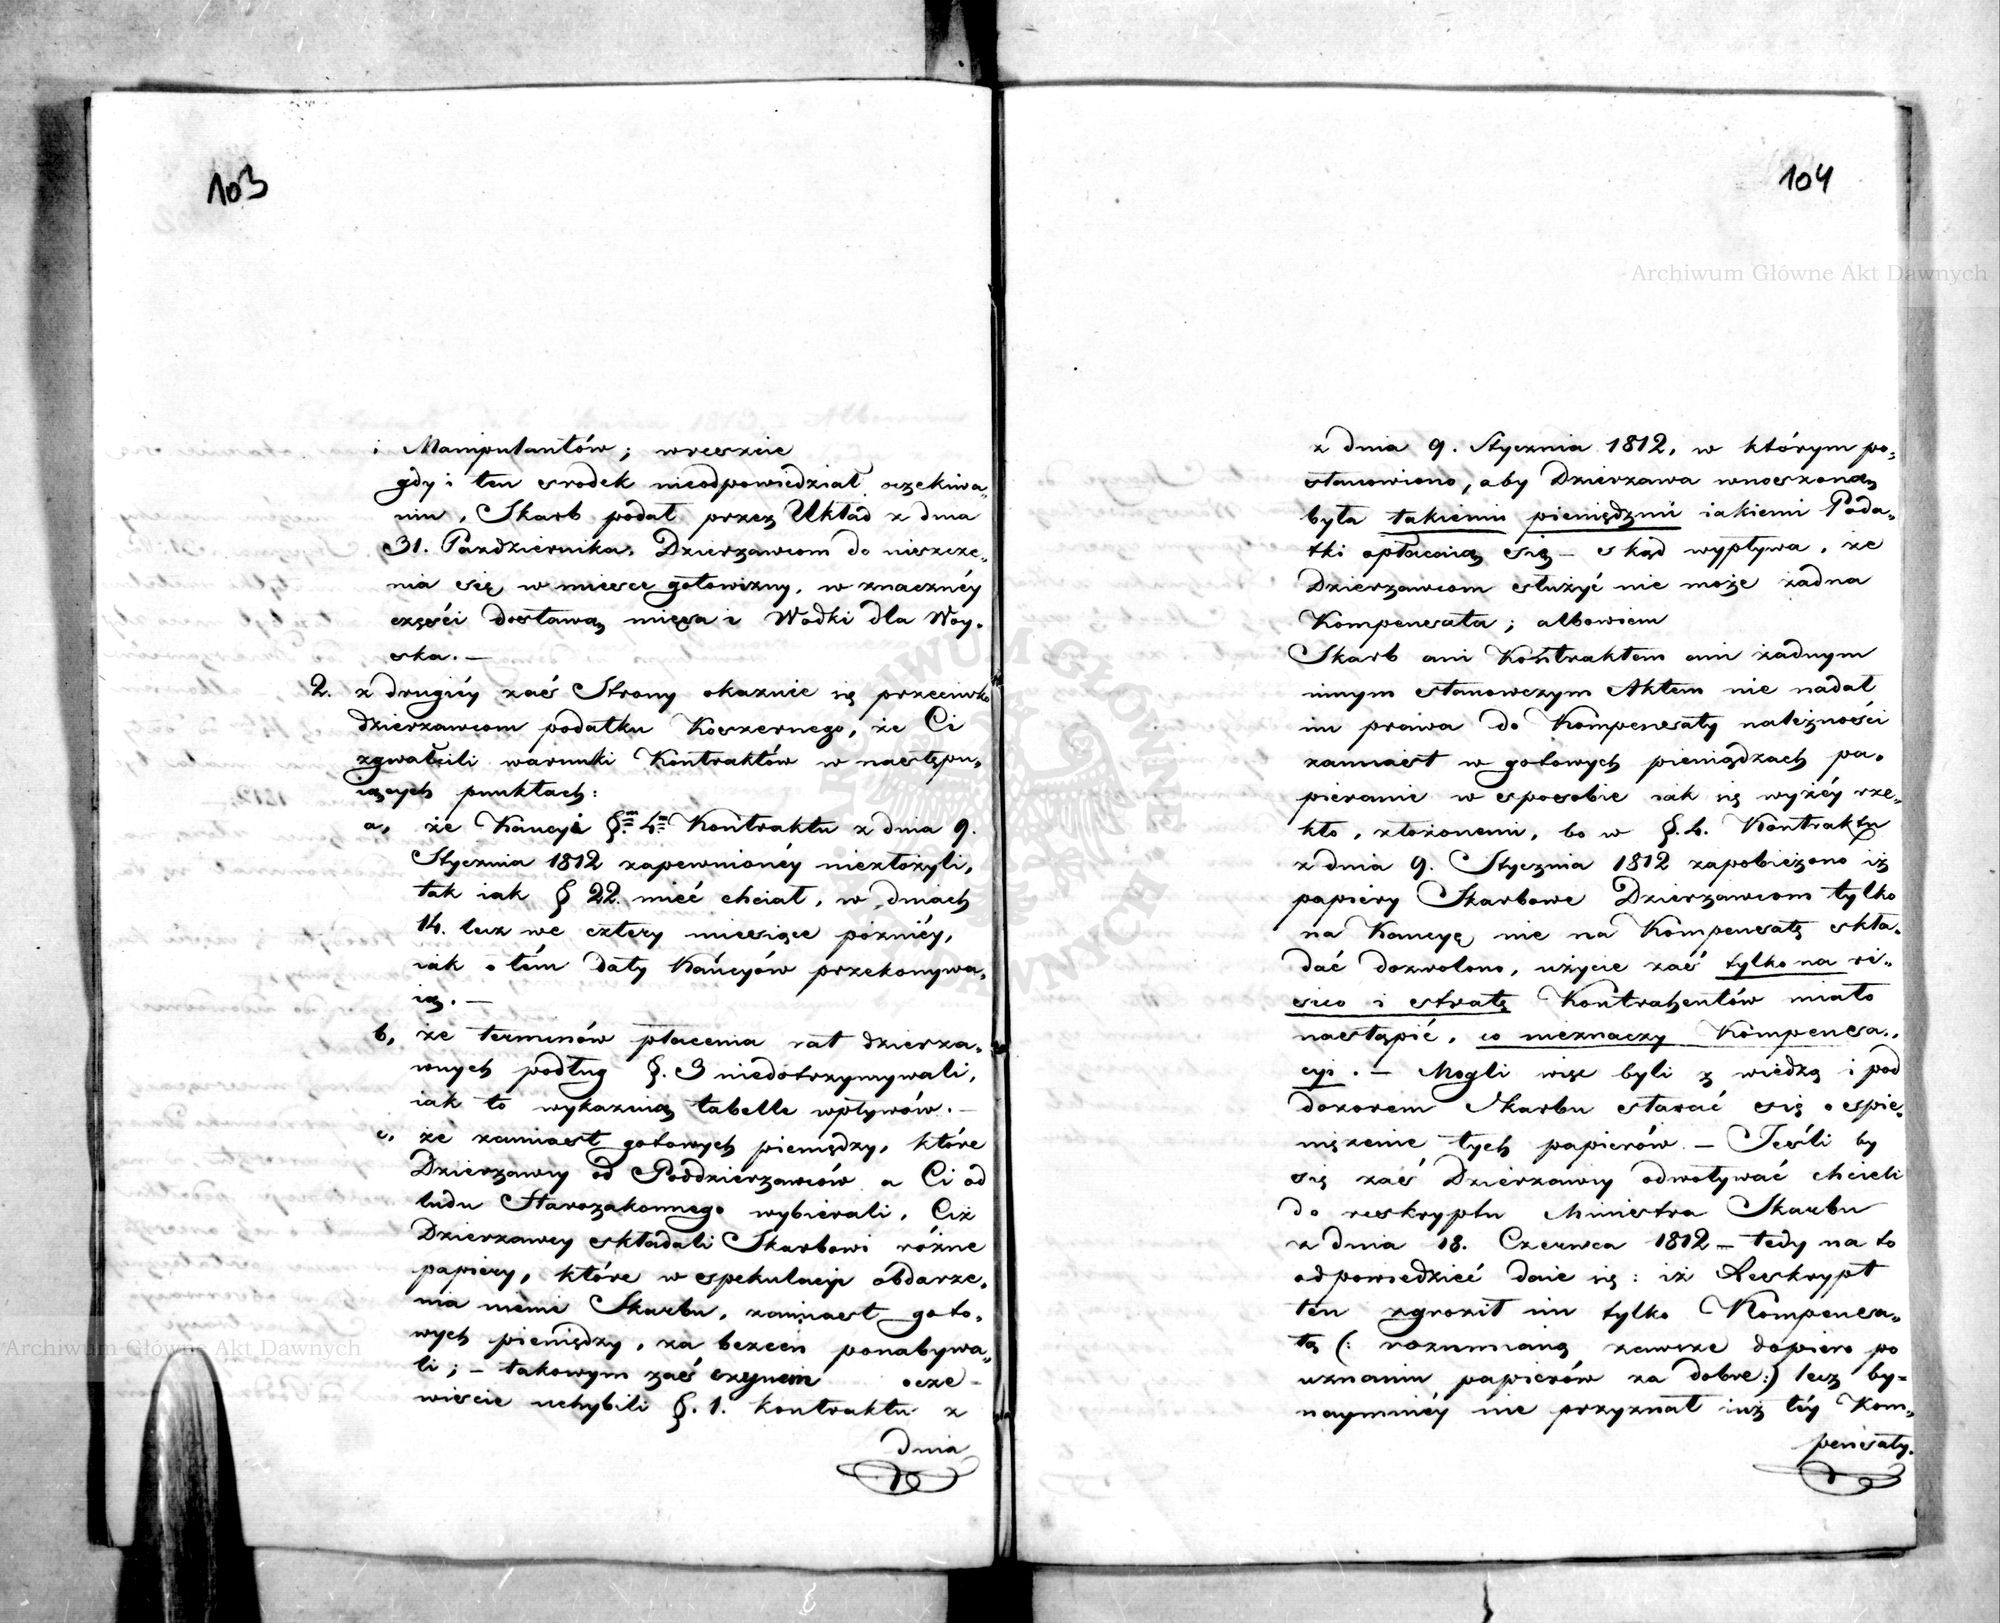 103
i Manipulantów; wreszcie
gdy i ten srodek nieodpowiedział oczekiwa„
niu, Skarb podał przez Układ z dnia
31. Pazdziernika, Dzierzawcom do uiszcze„
nia się w miesce gotowizny, w znacznéy
części dostawą mięsa i Wodki dla Woy„
ska. —
2. z drugiéy zaś Strony okazuie się przeciwko
dzierzawcom podatku Koszernego, że Ci
zgwałcili warunki Kontraktów w następu„
iących punktach:
a, że Kaucyi §m 4m Kontraktu z dnia 9.
Stycznia 1812 zapewnionéy niezłożyli,
tak iak § 22. mieć chciał, w dniach
14. lecz we cztery miesiące pózniéy,
iak o tém daty Kaucyów przekonywa„
ią. —
b, że terminów płacenia rat dzierza„
wnych podług §. 3 niedotrzymywali,
iak to wykazuią tabelle wpływów. —
c, że zamiast gotowych pieniędzy, które
Dzierzawcy od Poddzierzawców a Ci od
ludu Starozakonnego wybierali, Ciż
Dzierzawcy składali Skarbowi rózne
papiery, które w spekulacyi obdarze„
nia niemi Skarbu, zamiast goto„
wych pieniędzy, za bezcen ponabywa„
li; – takowym zaś czynem ocze–
wiscie uchybili §. 1. kontraktu z
dnia
104
z dnia 9. Stycznia 1812, w którym po„
stanowiono, aby Dzierzawa wnoszoną
była takiemi pieniędzmi iakiemi Poda„
tki opłacaią się – skąd wypływa, że
Dzierzawcom służyć nie może żadna
Kompensata; albowiem
Skarb ani Kontraktem ani żadnym
innym stanowczym Aktem nie nadał
im prawa do Kompensaty należności
zamiast w gotowych pieniądzach pa„
pierami w sposobie iak się wyżéy rze„
kło, złożonemi, bo w §. 4. Kontraktu
z dnia 9. Stycznia 1812 zapobieżono iż
papiery Skarbowe Dzierzawcom tylko
na Kaucyę nie na Kompensatę skła„
dać dozwolono, użycie zaś tylko na ri„
sico i stratę Kontrahentów miało
nastąpić, co nieznaczy Kompensa„
cyi. – Mogli więc byli z wiedzą i pod
dozorem Skarbu starać się o spie„
niężenie tych papierów – Jeśli by
się zaś Dzierzawcy odwoływać chcieli
do reskryptu Ministra Skarbu
z dnia 18. Czerwca 1812 – tedy na to
odpowiedzieć daie się: iż Reskrypt
ten zgroził im tylko Kompensa„
tą (: rozumianą zawsze dopiero po
uznaniu papierów za dobre:) lecz by=
naymniéy nie przyznał iuż téy Kom„
pensaty.
Archiwum Główne Akt Dawnych
Archiwum Główne Akt Dawnych
ARCHIWUM GŁÓWNE AKT DAWNYCH